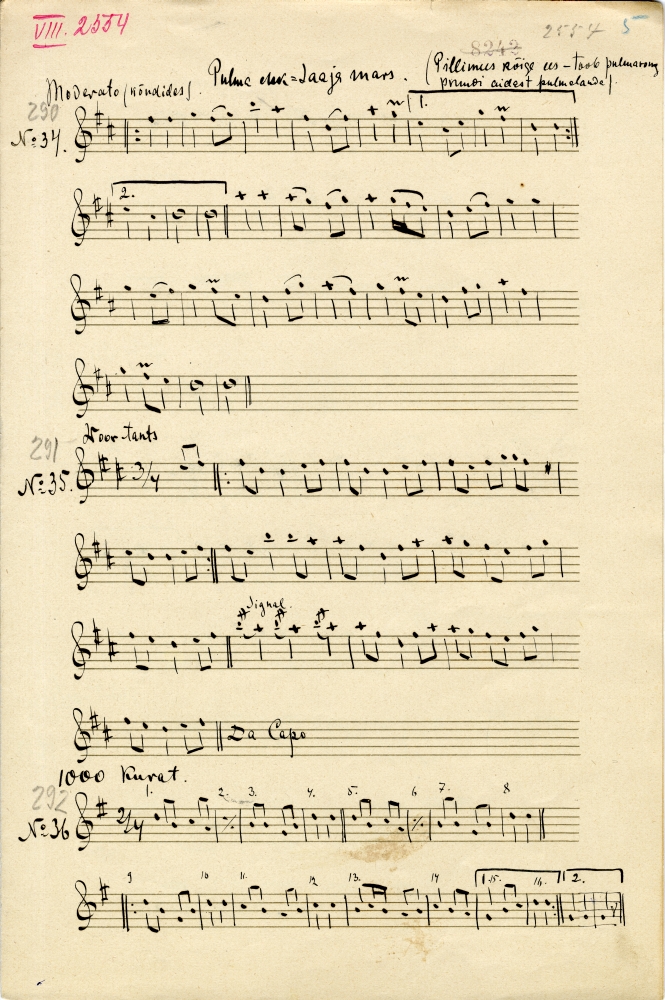 VIII. 2554
2554 5
8242
Moderato (kõndides). Pulma ehk = Saaja mars. (Pillimus kõige ees - toob pulmarong
pruudi aidest pulmalaude).
290
No 34. 1.
2.
291 Noor tants
No 35. 3/4
Signal.
Da Capo
1000 Kurat.
292
No 36 2/4 1. 2. 3. 4. 5. 6 7. 8
9 10 11. 12 13. 14 1 15. 16. 2.